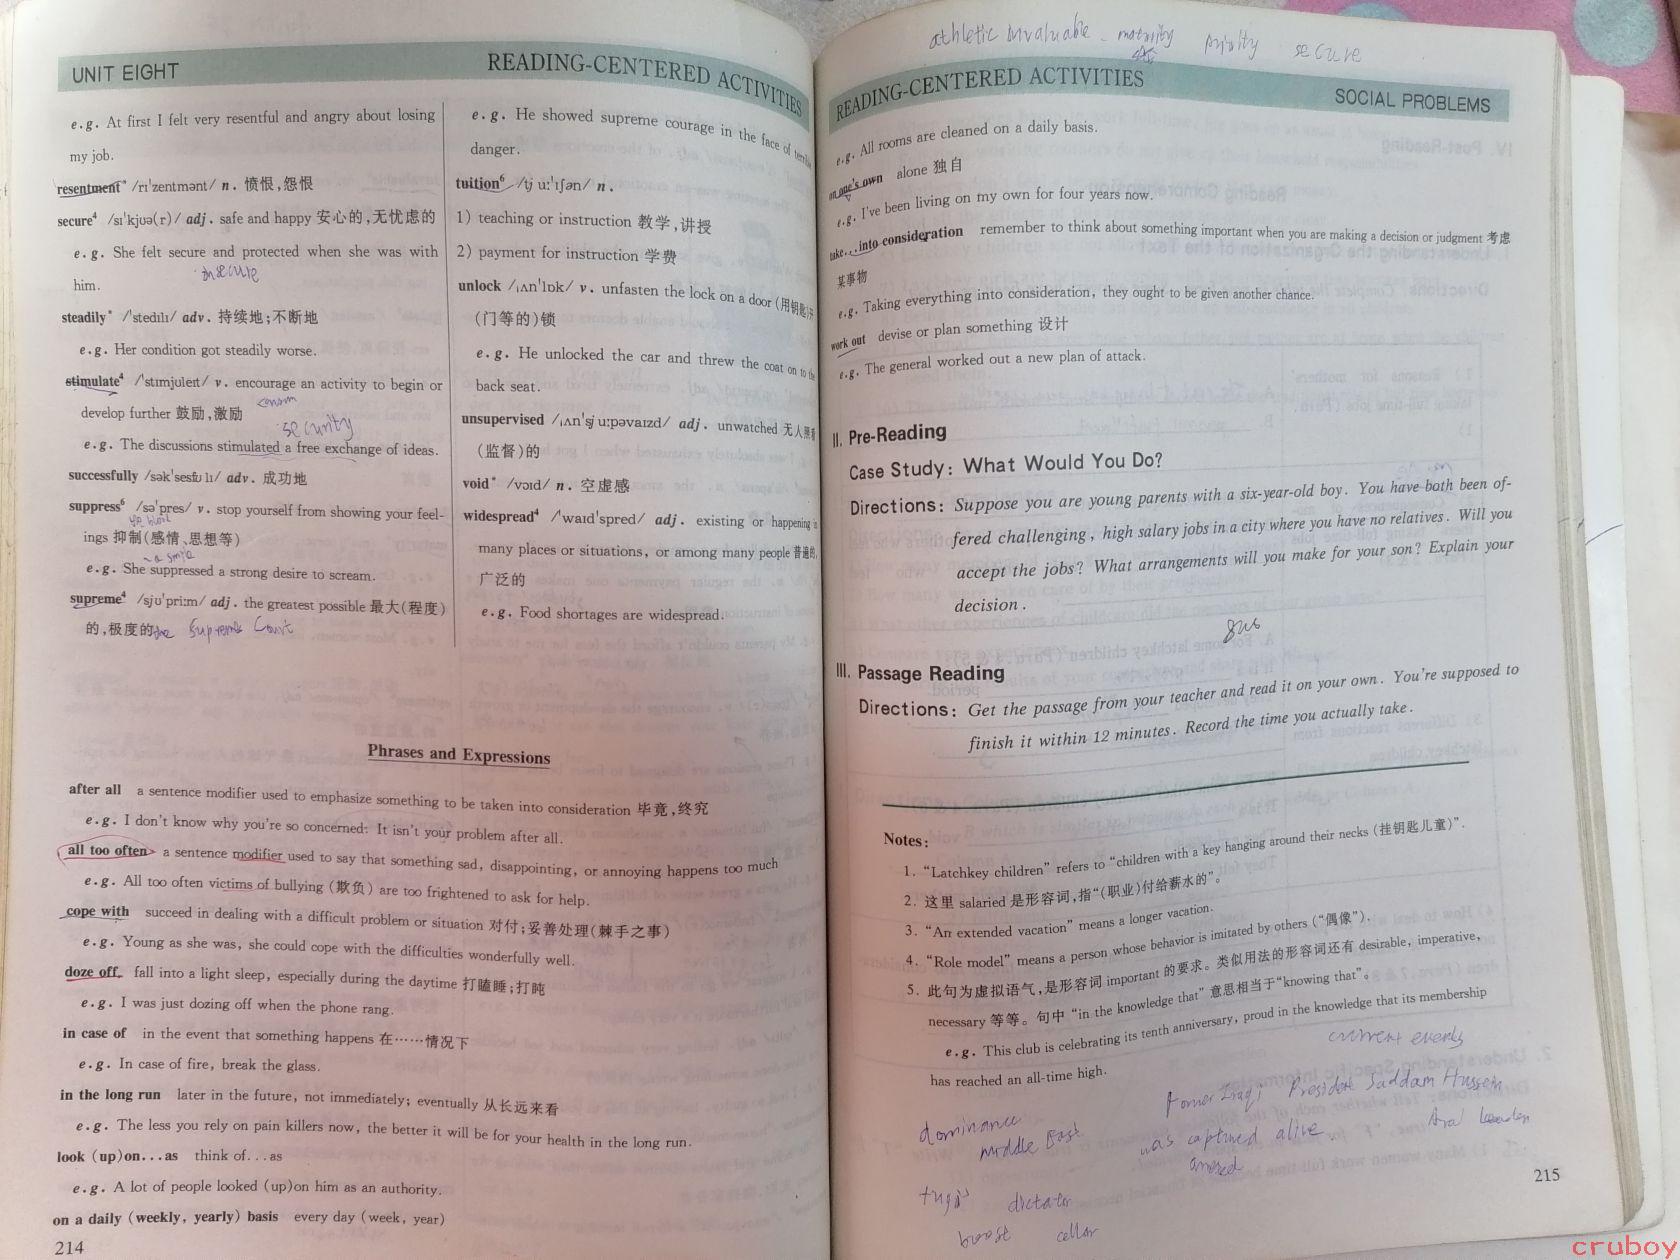 UNIT EIGHT
READING-CENTERED ACTIVITIES
e.g. At first I felt very resentful and angry about losing
my job.
resentment* /rɪ'zentmənt/ n. 愤恨,怨恨
secure⁴ /sɪ'kjʊə(r)/ adj. safe and happy 安心的,无忧虑的
e.g. She felt secure and protected when she was with
insecure
him.
steadily* /'stedɪlɪ/ adv. 持续地;不断地
e.g. Her condition got steadily worse.
stimulate⁴ /'stɪmjʊleɪt/ v. encourage an activity to begin or
develop further 鼓励,激励
security
e.g. The discussions stimulated a free exchange of ideas.
successfully /sək'sesfʊlɪ/ adv. 成功地
suppress⁶ /sə'pres/ v. stop yourself from showing your feel-
ings 抑制(感情、思想等)
a smile
e.g. She suppressed a strong desire to scream.
supreme⁴ /sjʊ'priːm/ adj. the greatest possible 最大(程度)
的,极度的 the Supreme Court
e.g. He showed supreme courage in the face of terrible
danger.
tuition⁶ /tjuː'ɪʃən/ n.
1) teaching or instruction 教学,讲授
2) payment for instruction 学费
unlock /ˌʌn'lɒk/ v. unfasten the lock on a door (用钥匙)开
(门等的)锁
e.g. He unlocked the car and threw the coat on to the
back seat.
unsupervised /ˌʌn'sjuːpəvaɪzd/ adj. unwatched 无人照看
(监督)的
void* /vɔɪd/ n. 空虚感
widespread⁴ /'waɪd'spred/ adj. existing or happening in
many places or situations, or among many people 普遍的,
广泛的
e.g. Food shortages are widespread.
Phrases and Expressions
after all a sentence modifier used to emphasize something to be taken into consideration 毕竟,终究
e.g. I don't know why you're so concerned: It isn't your problem after all.
all too often a sentence modifier used to say that something sad, disappointing, or annoying happens too much
e.g. All too often victims of bullying (欺负) are too frightened to ask for help.
cope with succeed in dealing with a difficult problem or situation 对付;妥善处理(棘手之事)
e.g. Young as she was, she could cope with the difficulties wonderfully well.
doze off fall into a light sleep, especially during the daytime 打瞌睡;打盹
e.g. I was just dozing off when the phone rang.
in case of in the event that something happens 在……情况下
e.g. In case of fire, break the glass.
in the long run later in the future, not immediately; eventually 从长远来看
e.g. The less you rely on pain killers now, the better it will be for your health in the long run.
look (up)on...as think of...as
e.g. A lot of people looked (up)on him as an authority.
on a daily (weekly, yearly) basis every day (week, year)
214
athletic invaluable maturity priority secure
READING-CENTERED ACTIVITIES
SOCIAL PROBLEMS
e.g. All rooms are cleaned on a daily basis.
on one's own alone 独自
e.g. I've been living on my own for four years now.
take...into consideration remember to think about something important when you are making a decision or judgment 考虑
某事物
e.g. Taking everything into consideration, they ought to be given another chance.
work out devise or plan something 设计
e.g. The general worked out a new plan of attack.
II. Pre-Reading
Case Study: What Would You Do?
Directions: Suppose you are young parents with a six-year-old boy. You have both been of-
fered challenging, high salary jobs in a city where you have no relatives. Will you
accept the jobs? What arrangements will you make for your son? Explain your
decision.
III. Passage Reading
Directions: Get the passage from your teacher and read it on your own. You're supposed to
finish it within 12 minutes. Record the time you actually take.
Notes:
1. "Latchkey children" refers to "children with a key hanging around their necks (挂钥匙儿童)".
2. 这里 salaried 是形容词,指"(职业)付给薪水的"。
3. "An extended vacation" means a longer vacation.
4. "Role model" means a person whose behavior is imitated by others ("偶像").
5. 此句为虚拟语气,是形容词 important 的要求。类似用法的形容词还有 desirable, imperative,
necessary 等等。句中 "in the knowledge that" 意思相当于"knowing that"。
e.g. This club is celebrating its tenth anniversary, proud in the knowledge that its membership
has reached an all-time high.
current events
Former Iraqi President Saddam Hussein
dominance
middle East
was captured alive
dictator
boost cellar
215
cruboy